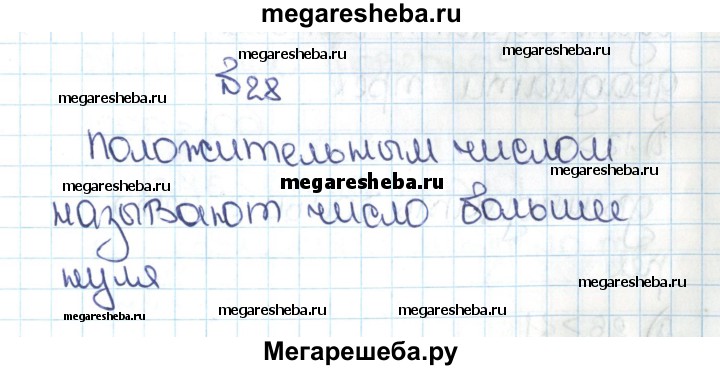 megaresheba.ru
megaresheba.ru megaresheba.ru
№28
megaresheba.ru
положительным числом
megaresheba.ru megaresheba.ru megaresheba.ru
называют число большее
нуля
megaresheba.ru megaresheba.ru megaresheba.ru
Мегарешеба.ру